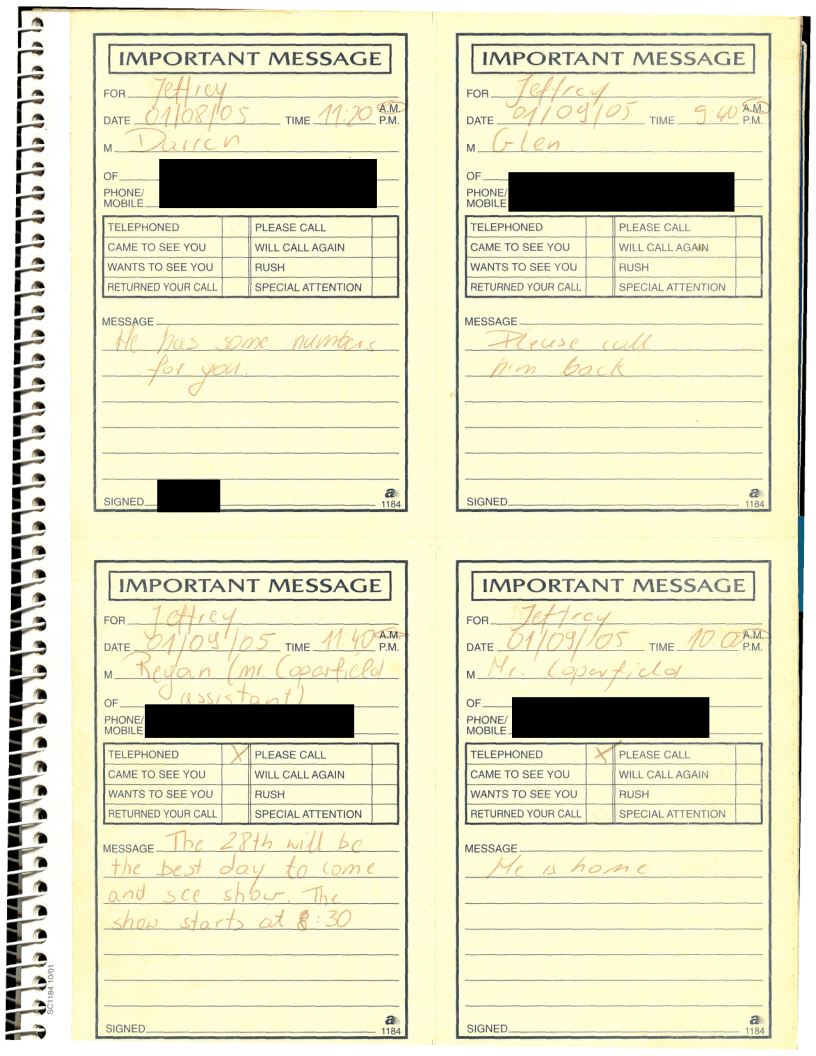 IMPORTANT MESSAGE
FOR Jeffrey
DATE 01/08/05 TIME 11:20 A.M. P.M.
M Darren
OF
PHONE/
MOBILE
TELEPHONED PLEASE CALL
CAME TO SEE YOU WILL CALL AGAIN
WANTS TO SEE YOU RUSH
RETURNED YOUR CALL SPECIAL ATTENTION
MESSAGE
He has some numbers
for you.
SIGNED
a
1184
IMPORTANT MESSAGE
FOR Jeffrey
DATE 01/09/05 TIME 9:40 A.M. P.M.
M Glen
OF
PHONE/
MOBILE
TELEPHONED PLEASE CALL
CAME TO SEE YOU WILL CALL AGAIN
WANTS TO SEE YOU RUSH
RETURNED YOUR CALL SPECIAL ATTENTION
MESSAGE
Please call
him back
SIGNED
a
1184
IMPORTANT MESSAGE
FOR Jeffrey
DATE 01/09/05 TIME 11:40 A.M. P.M.
M Regan (mr. Coparfield
assistant)
OF
PHONE/
MOBILE
TELEPHONED X PLEASE CALL
CAME TO SEE YOU WILL CALL AGAIN
WANTS TO SEE YOU RUSH
RETURNED YOUR CALL SPECIAL ATTENTION
MESSAGE The 28th will be
the best day to come
and see show. The
show starts at 8:30
SIGNED
a
1184
IMPORTANT MESSAGE
FOR Jeffrey
DATE 01/09/05 TIME 10:00 A.M. P.M.
M Mr. Coparfield
OF
PHONE/
MOBILE
TELEPHONED X PLEASE CALL
CAME TO SEE YOU WILL CALL AGAIN
WANTS TO SEE YOU RUSH
RETURNED YOUR CALL SPECIAL ATTENTION
MESSAGE
He is home
SIGNED
a
1184
SC1184 10/01